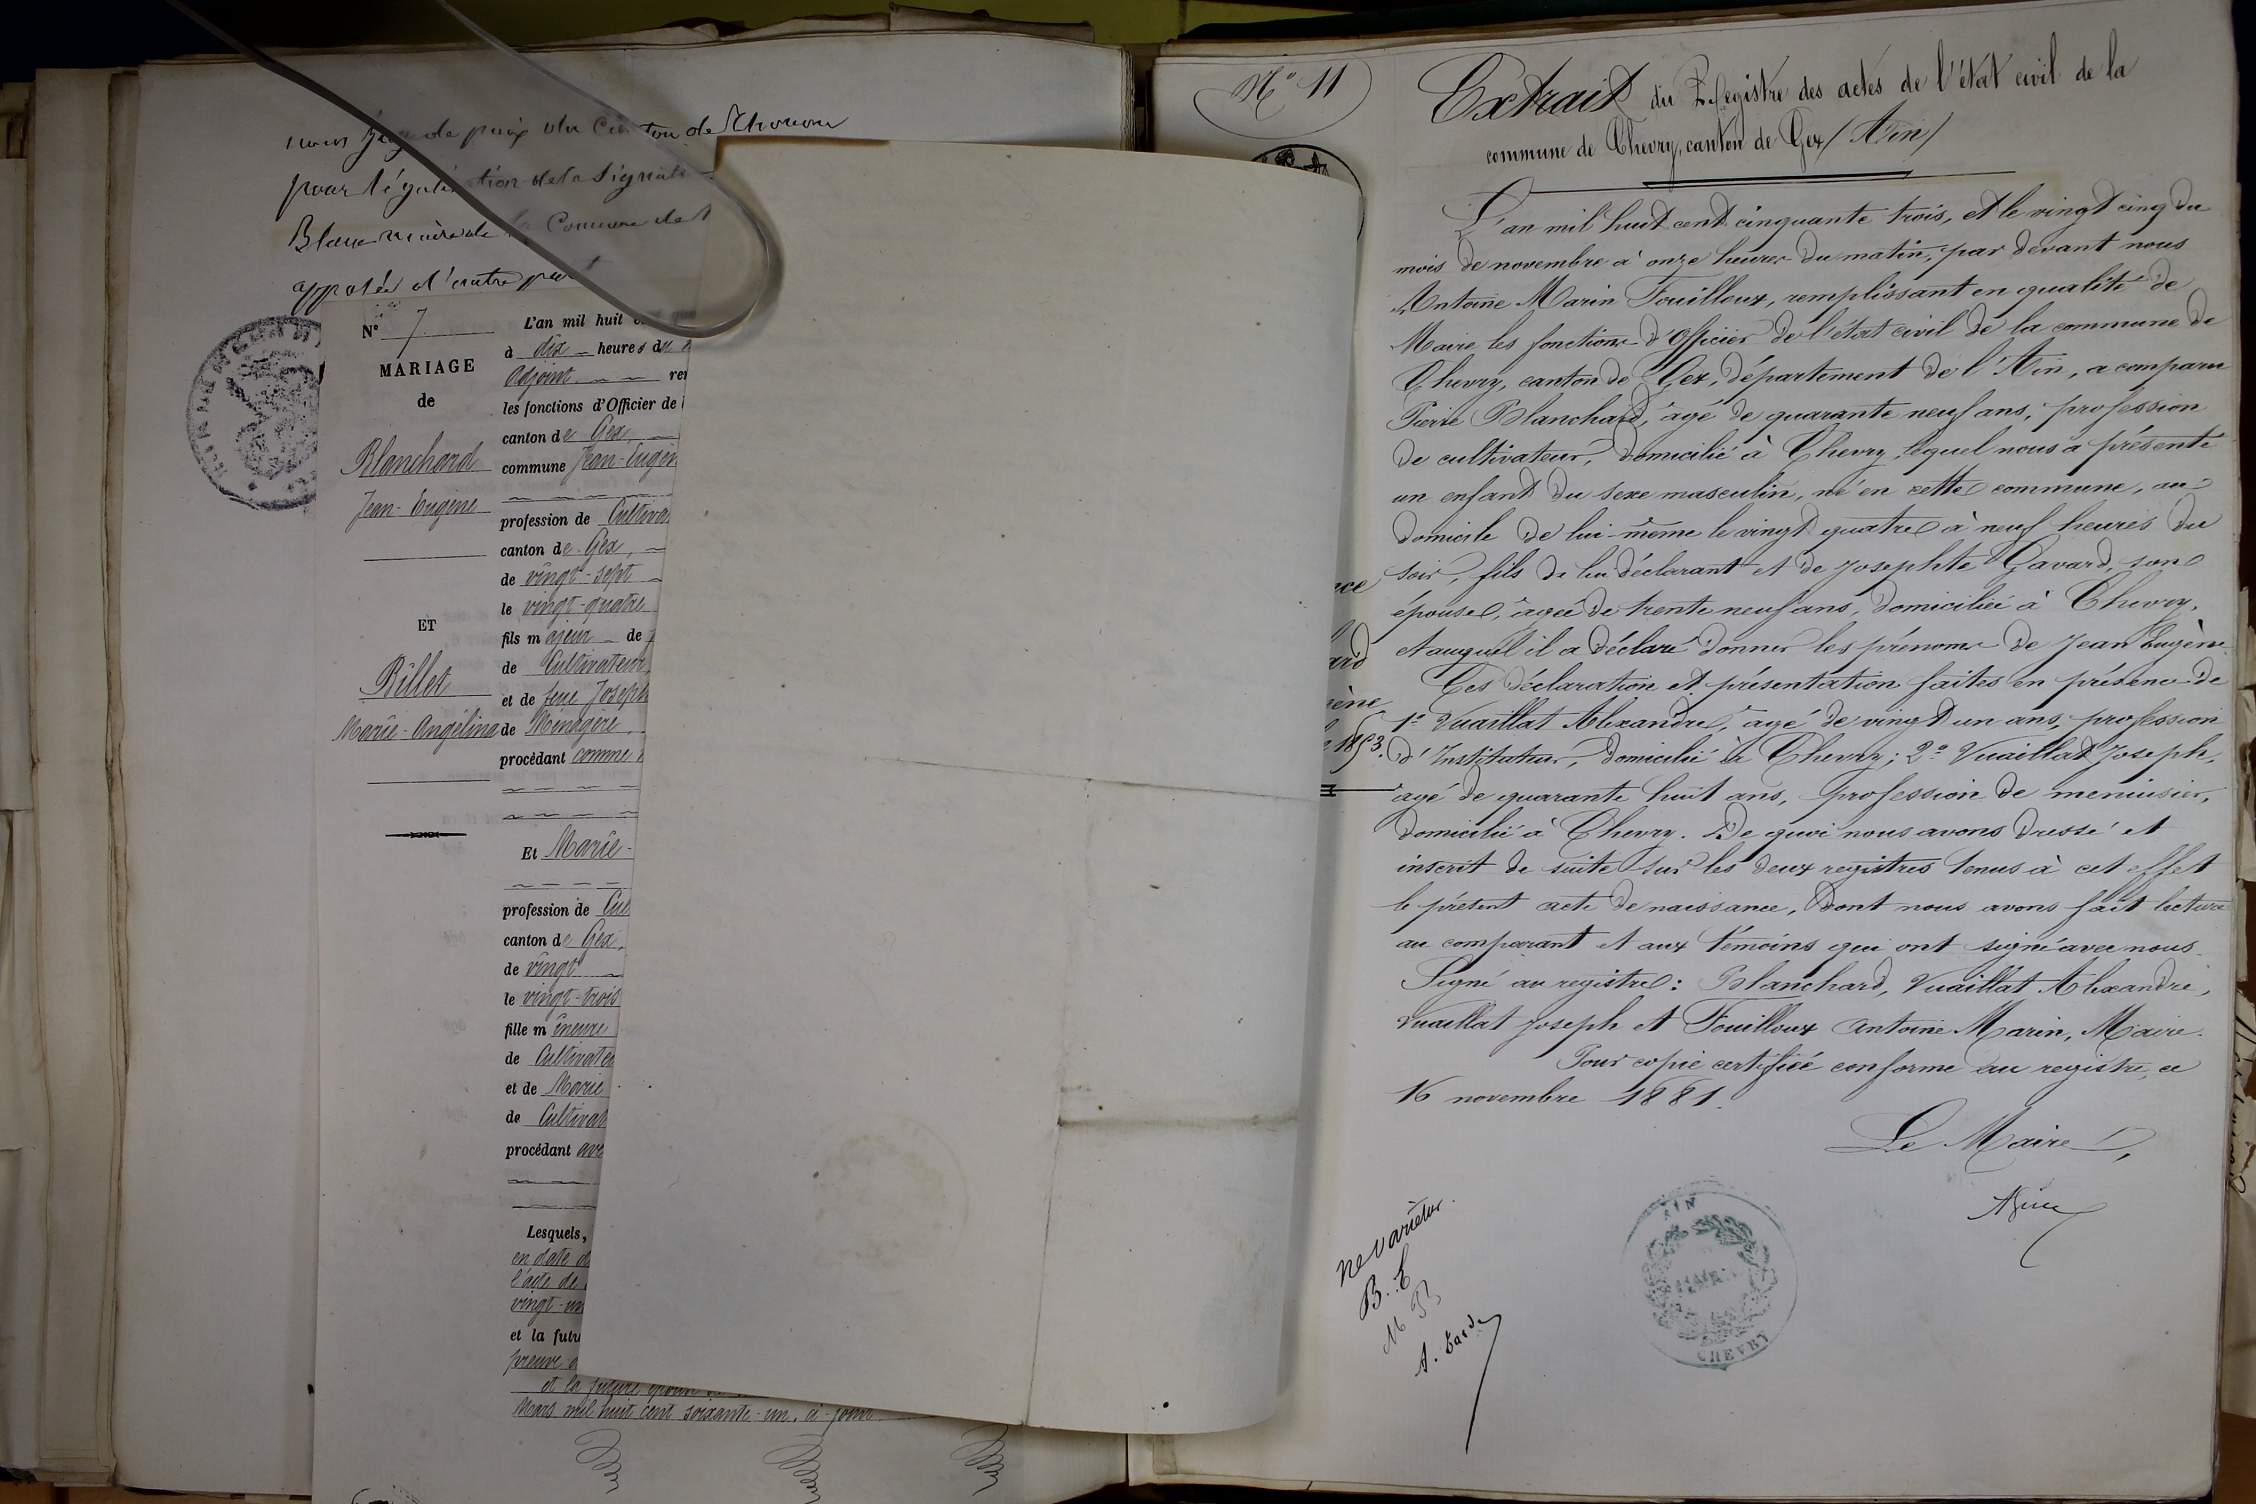 pour
apposée d'autre part
N° 7
MARIAGE
de
Blanchard
Jean-Eugène
ET
Billet
Marie-Angélina
L'an mil huit
à dix heures du
Adjoint
les fonctions d'Officier de
canton de Gex,
commune Jean-Eugèn
profession de Cultiva
canton de Gex,
de vingt-sept
le vingt-quatre
fils majeur de
de Cultivateur,
et de feue Joseph
de Ménagère,
procédant comme
Et Marie-
profession de Cul
canton de Gex,
de vingt
le vingt-trois
fille mineure
de Cultivate
et de Marie
de Cultivat
procédant ave
Lesquels,
en date d
l'acte de
vingt-un
et la futu
preuve d
et la future
Mars mil huit cent soixante-un, ci-joint
N° 11
Extrait du Registre des actes de l'état civil de la
commune de Chevry, canton de Gex (Ain)
L'an mil huit cent cinquante trois, et le vingt cinq du
mois de novembre à onze heures du matin, par devant nous
Antoine Marin Fouilloux, remplissant en qualité de
Maire les fonctions d'Officier de l'état civil de la commune de
Chevry, canton de Gex, département de l'Ain, a comparu
Pierre Blanchard, âgé de quarante neuf ans, profession
de cultivateur, domicilié à Chevry, lequel nous a présenté
un enfant du sexe masculin, né en cette commune, au
domicile de lui-même le vingt quatre à neuf heures du
soir, fils de lui déclarant et de Josephte Gavard, son
épouse, âgée de trente neuf ans, domiciliée à Chevry,
et auquel il a déclaré donner les prénoms de Jean Eugène.
Ces déclaration et présentation faites en présence de
1° Vuaillat Alexandre, âgé de vingt un ans, profession
d'Instituteur, domicilié à Chevry; 2° Vuaillat Joseph,
âgé de quarante huit ans, profession de menuisier,
domicilié à Chevry. De quoi nous avons dressé et
inscrit de suite sur les deux registres tenus à cet effet
le présent acte de naissance, dont nous avons fait lecture
au comparant et aux témoins qui ont signé avec nous.
Signé au registre: Blanchard, Vuaillat Alexandre,
Vuaillat Joseph et Fouilloux Antoine Marin, Maire.
Pour copie certifiée conforme au registre, ce
16 novembre 1881.
Le Maire,
ard
ène
1853.
ne varietur.
B. E
AIN
MAIRIE
CHEVRY